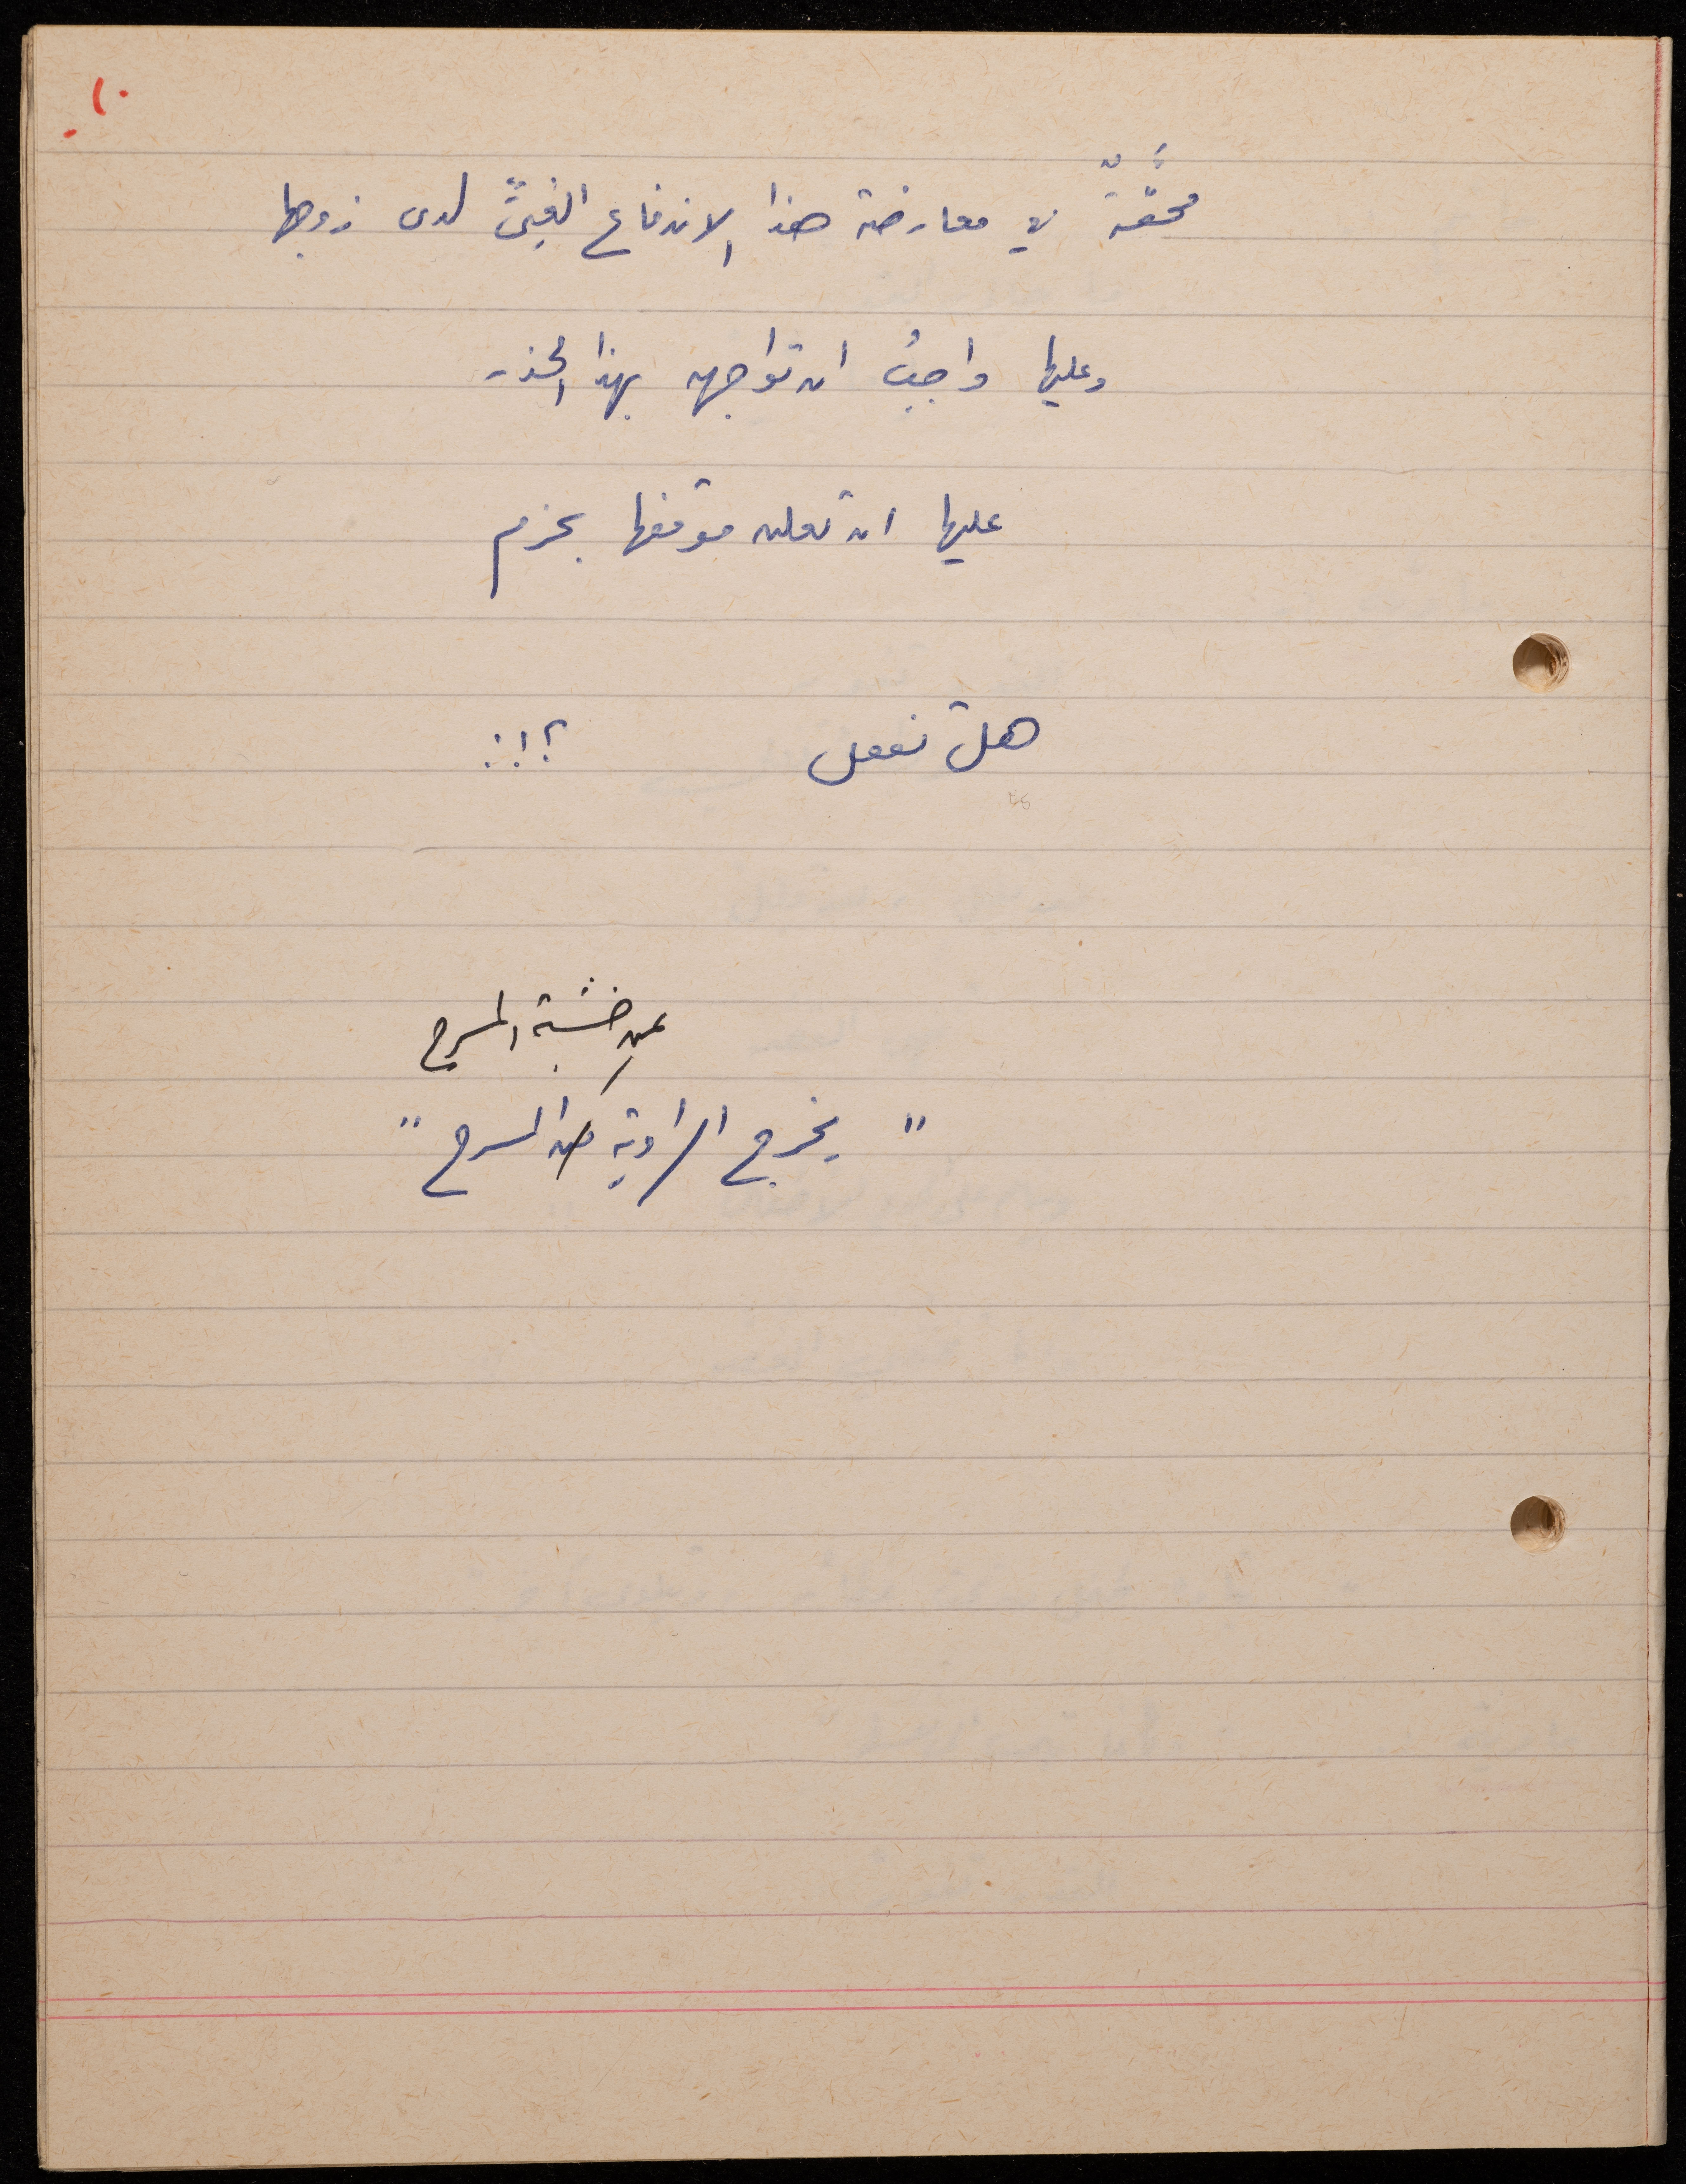 ١٠
محقّةٌ في معارضة هذا الاندفاع الغبيّ لدى زوجها
وعليها واجبُ ان تواجهه بهذا الحذر
عليها ان تعلن موقفها بحزم
هل تفعل ؟!!
عن خشبة المسرح
" يخرج الراوية من المسرح "